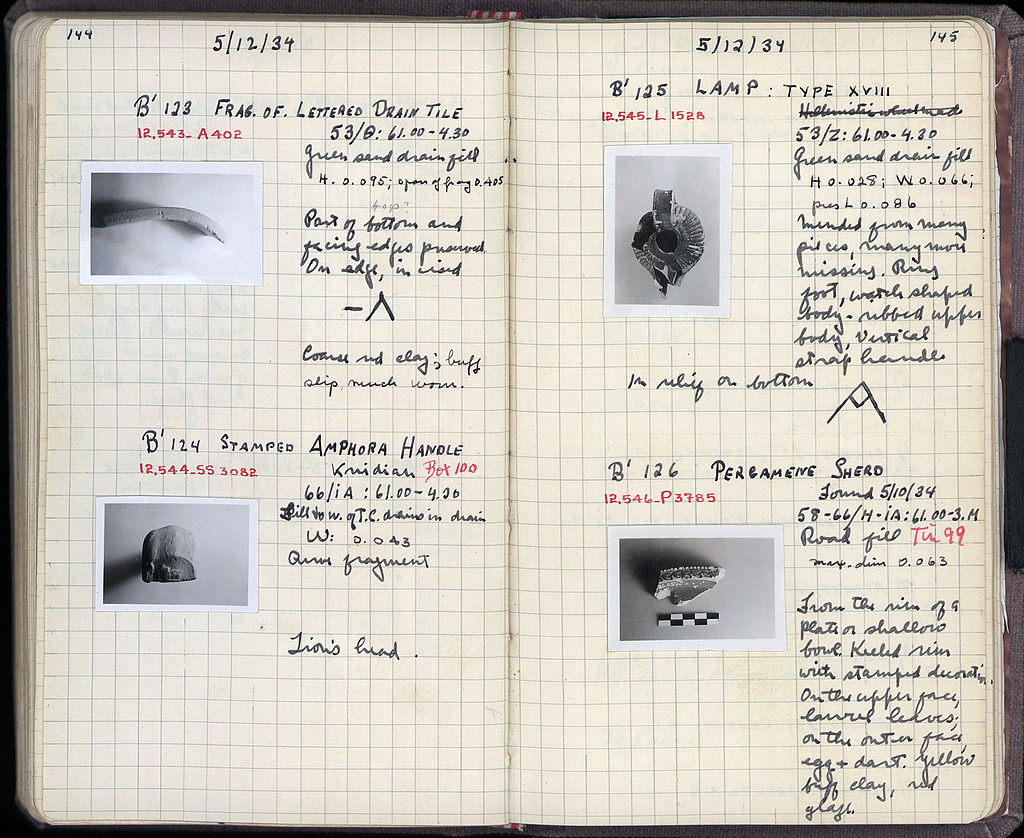 144
5/12/34
B' 123 FRAG. OF. LETTERED DRAIN TILE
12.543_A402
53/Θ: 61.00-4.30
Green sand drain fill
H. 0.095; span of frag 0.405
top?
Part of bottom and
facing edges preserved.
On edge, incised
-Λ
Coarse red clay; buff
slip, much worn.
B' 124 STAMPED AMPHORA HANDLE
12.544_SS 3082
Knidian Box 100
66/ΙΑ : 61.00-4.30
Fill to w. of T.C. drains in drain
W: 0.043
Curve fragment
Lion's head.
145
5/12/34
B' 125 LAMP : TYPE XVIII
12.545-L 1528
Hellenistic wheelmade
53/Z: 61.00-4.30
Green sand drain fill
H 0.028; W 0.066;
pres L 0.086
Mended from many
pieces, many more
missing. Ring
foot, watch shaped
body - ribbed upper
body, Vertical
strap handle
In relief on bottom
B' 126 PERGAMENE SHERD
12.546_P3785
Found 5/10/34
58-66/H-ΙΑ: 61.00-3.M
Road fill Tin 99
max. dim 0.063
From the rim of a
plate or shallow
bowl. Keeled rim
with stamped decoration.
On the upper face,
laurel leaves;
on the outer face,
egg + dart. Yellow
buff clay, red
glaze.